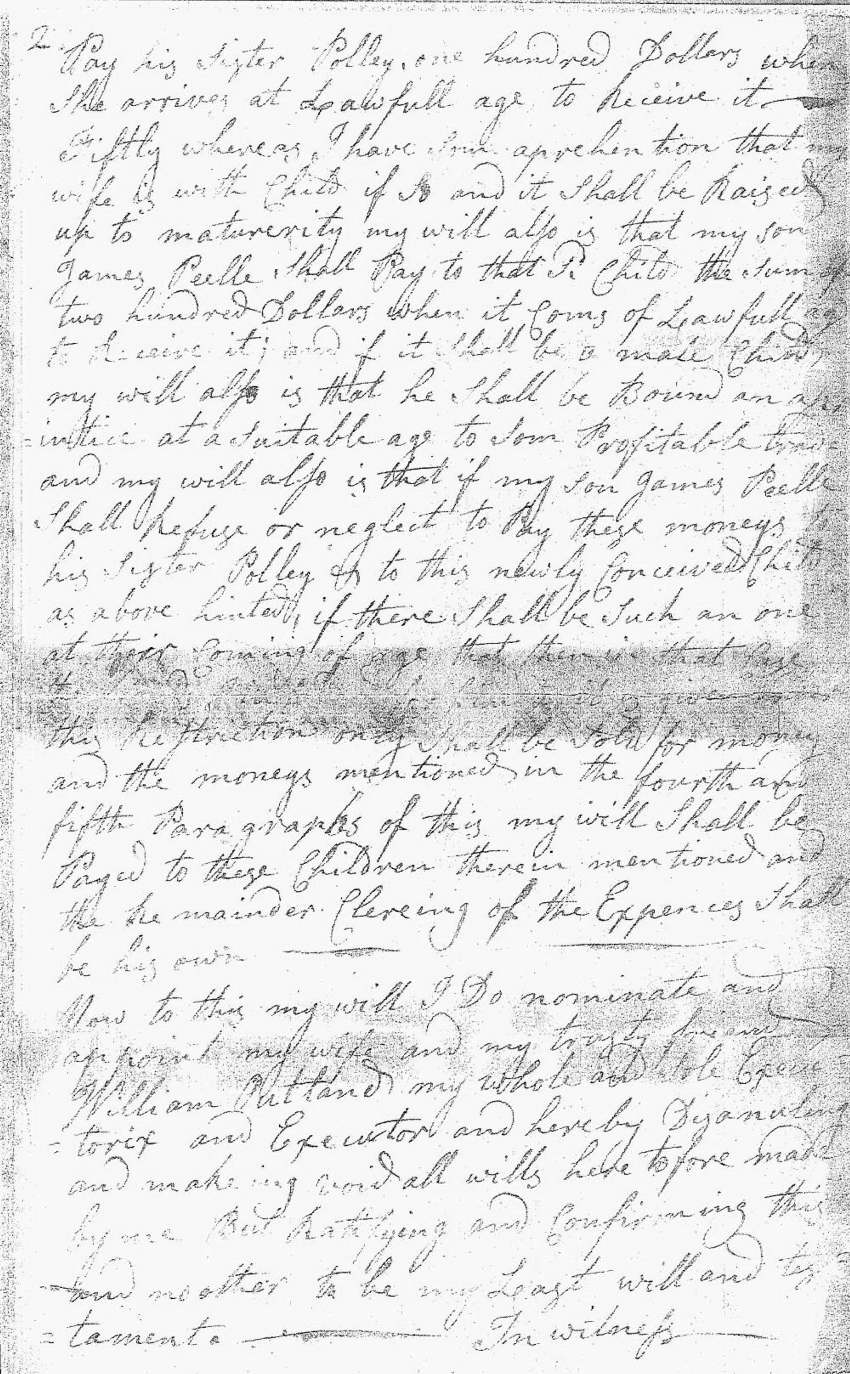 2
Pay his Sister Polley, one hundred Dollars when
She arrives at Lawfull age to Receive it
Fiftly whereas I have Som aprehention that my
wife is with Child if So and it Shall be Raised
up to matureity my will also is that my son
James Peelle Shall Pay to that Sd Child the Sum of
two hundred Dollars when it Coms of Lawfull age
to Receive it; and if it Shall be a male Child
my will also is that he Shall be Bound an
=intice at a Suitable age to Som Profitable trade
and my will also is that if my son James Peelle
Shall Refuse or neglect to Pay these moneys to
his Sister Polley & to this newly Conceived Child
as above hinted, if there Shall be Such an one
at their Coming of age that then in that Case
this Restriction only Shall be Sold for money
and the moneys mentioned in the fourth and
fifth Paragraphs of this my will Shall be
Payed to these Children therein mentioned and
the Remainder Clereing of the Expences Shall
be his own
Now to this my will I Do nominate and
appoint my wife and my trusty friend
William Outland my whole and Sole Execu
=torix and Executor and hereby Disanuling
and makeing void all wills here tofore made
by me But Ratifying and Confirming this
and no other to be my Last will and tes
=tament. In witness